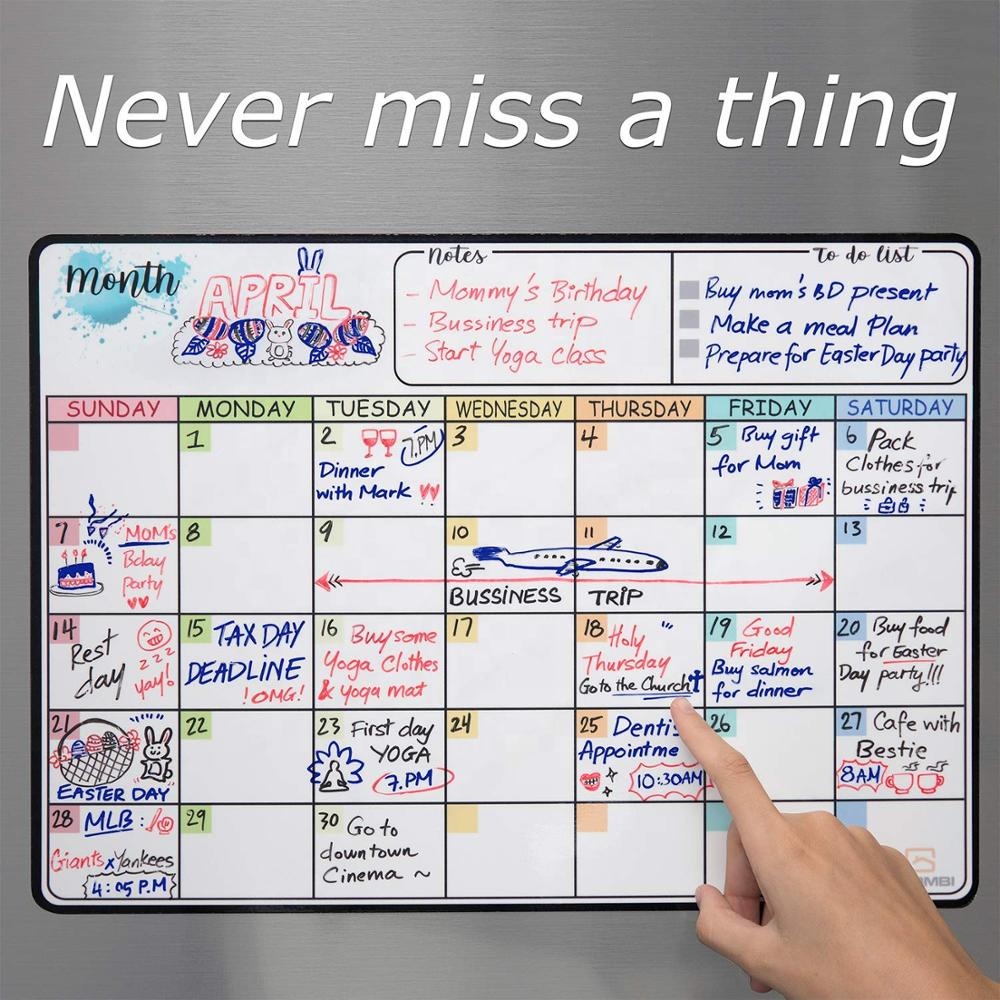 Never miss a thing
Month
APRIL
Notes
- Mommy's Birthday
- Bussiness trip
- Start Yoga class
To do list
Buy mom's BD present
Make a meal Plan
Prepare for Easter Day party
SUNDAY MONDAY TUESDAY WEDNESDAY THURSDAY FRIDAY SATURDAY
1
2
7.PM
Dinner
with Mark
3
4
5 Buy gift
for Mom
6 Pack
Clothes for
bussiness trip
7 MOM's
Bday
party
8
9
10
11
12
13
BUSSINESS TRIP
14
Rest
day
zzz
yay!
15 TAX DAY
DEADLINE
!OMG!
16 Buy some
Yoga Clothes
& yoga mat
17
18 Holy
Thursday
Go to the Church
19 Good
Friday
Buy salmon
for dinner
20 Buy food
for Easter
Day party!!!
21
EASTER DAY
22
23 First day
YOGA
7.PM
24
25 Dentis
Appointme
10:30AM
26
27 Cafe with
Bestie
8AM
28 MLB:
Giants x Yankees
4:05 P.M
29
30 Go to
downtown
Cinema ~